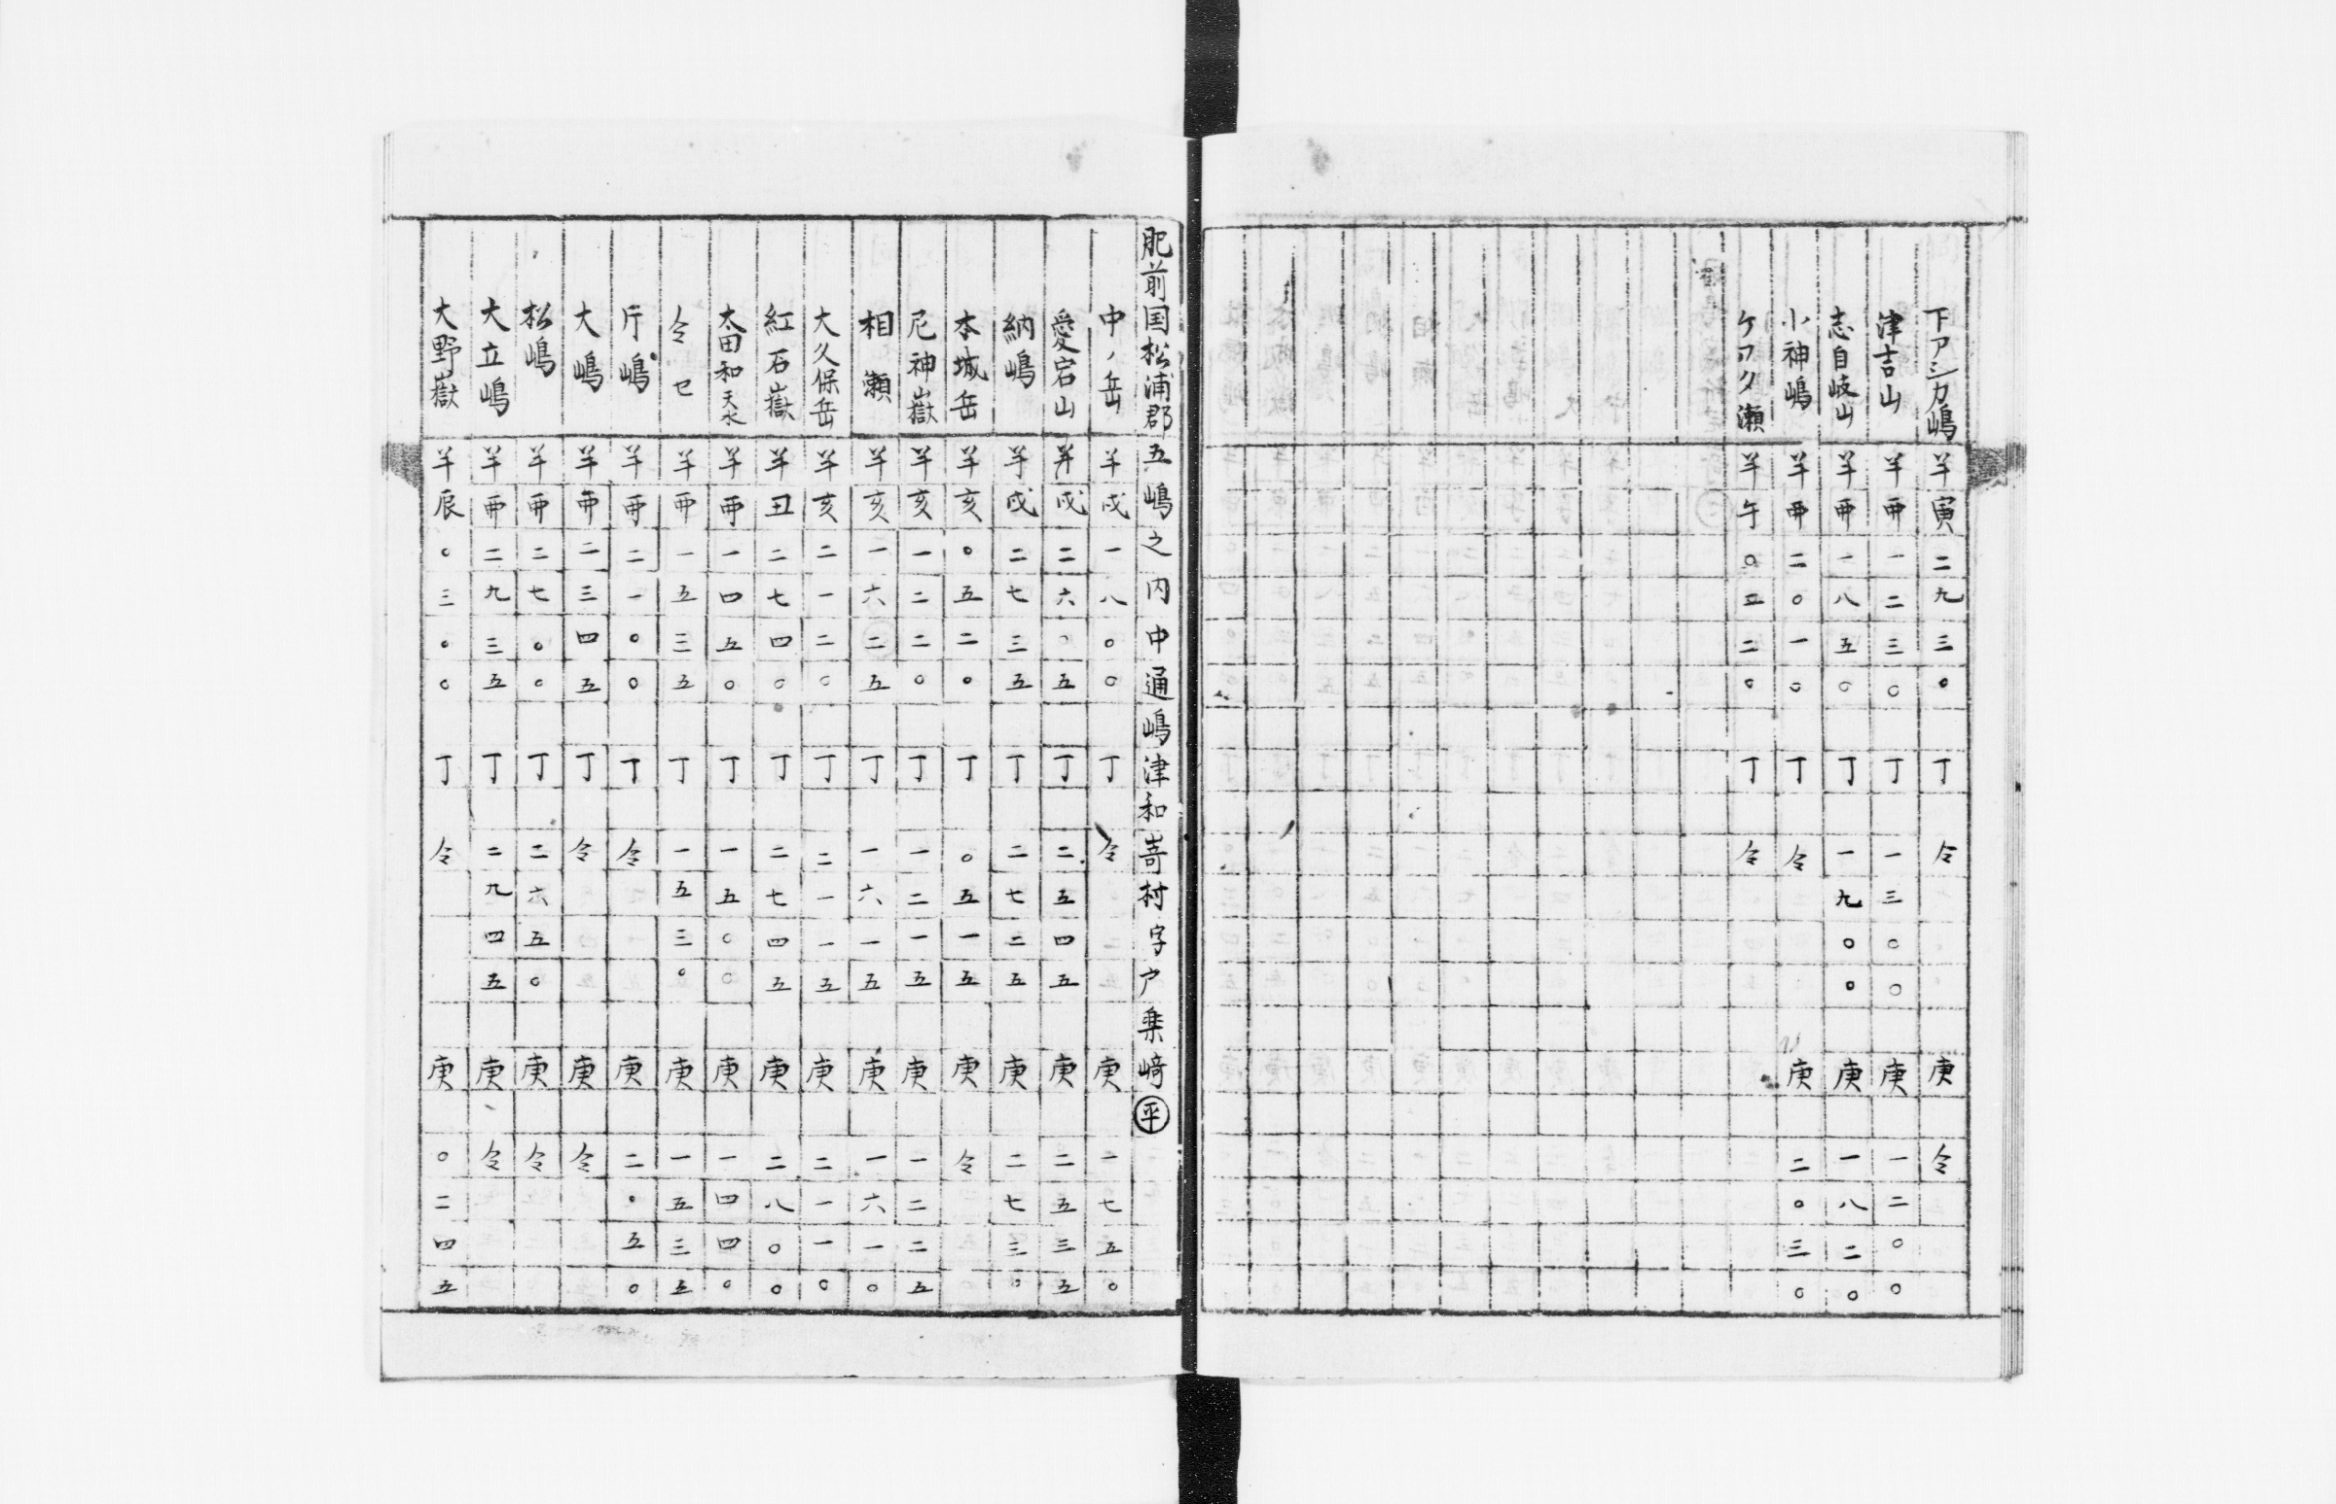 下アシカ嶋 羊 寅 二九三〇 丁 仝 庚 仝
津吉山 羊 酉 一二三〇 丁 一三〇〇 庚 一二〇〇
志自岐山 羊 酉 一八五〇 丁 一九〇〇 庚 一八二〇
小神嶋 羊 酉 二〇一〇 丁 仝 庚 二〇三〇
羊 午 丁 仝
肥前国松浦郡五嶋之内中通嶋津和嵜村字戸楽﨑 平
中ノ岳 羊 戌 一八〇〇 丁 仝 庚 一七五〇
愛宕山 羊 戌 二六〇五 丁 二五四五 庚 二五三五
納嶋 羊 戌 二七三五 丁 二七二五 庚 二七三〇
本城岳 羊 亥 〇五二〇 丁 〇五一五 庚 仝
尼神嶽 羊 亥 一二二〇 丁 一二一五 庚 一二二五
相瀬 羊 亥 一六二五 丁 一六一五 庚 一六一〇
大久保岳 羊 亥 二一二〇 丁 二一一五 庚 二一一〇
紅石嶽 羊 丑 二七四〇 丁 二七四五 庚 二八〇〇
太田和天水 羊 酉 一四五〇 丁 一五〇〇 庚 一四四〇
仝セ 羊 酉 一五三五 丁 一五三〇 庚 一五三五
片嶋 羊 酉 二一〇〇 丁 仝 庚 二〇五〇
大嶋 羊 酉 二三四五 丁 仝 庚 仝
松嶋 羊 酉 二七〇〇 丁 二六五〇 庚 仝
大立嶋 羊 酉 二九三五 丁 二九四五 庚 仝
大野嶽 羊 辰 〇三〇〇 丁 仝 庚 〇二四五